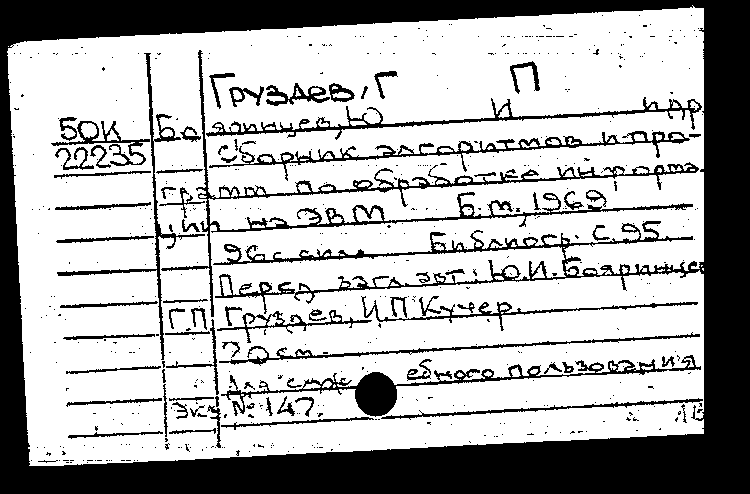 Груздев, Г П
БОК Бо яринцев, Ю И и др
22235 Сборник алгоритмов и про-
грамм по обработке информа-
ции на ЭВМ. Б.м., 1969
96с. с илл. Библиогр. с. 95.
Перед загл. авт.: Ю.И. Бояринцев
Г.П. Груздев, И.П Кучер.
20 см.
Для служебного пользования
Экз. № 147.